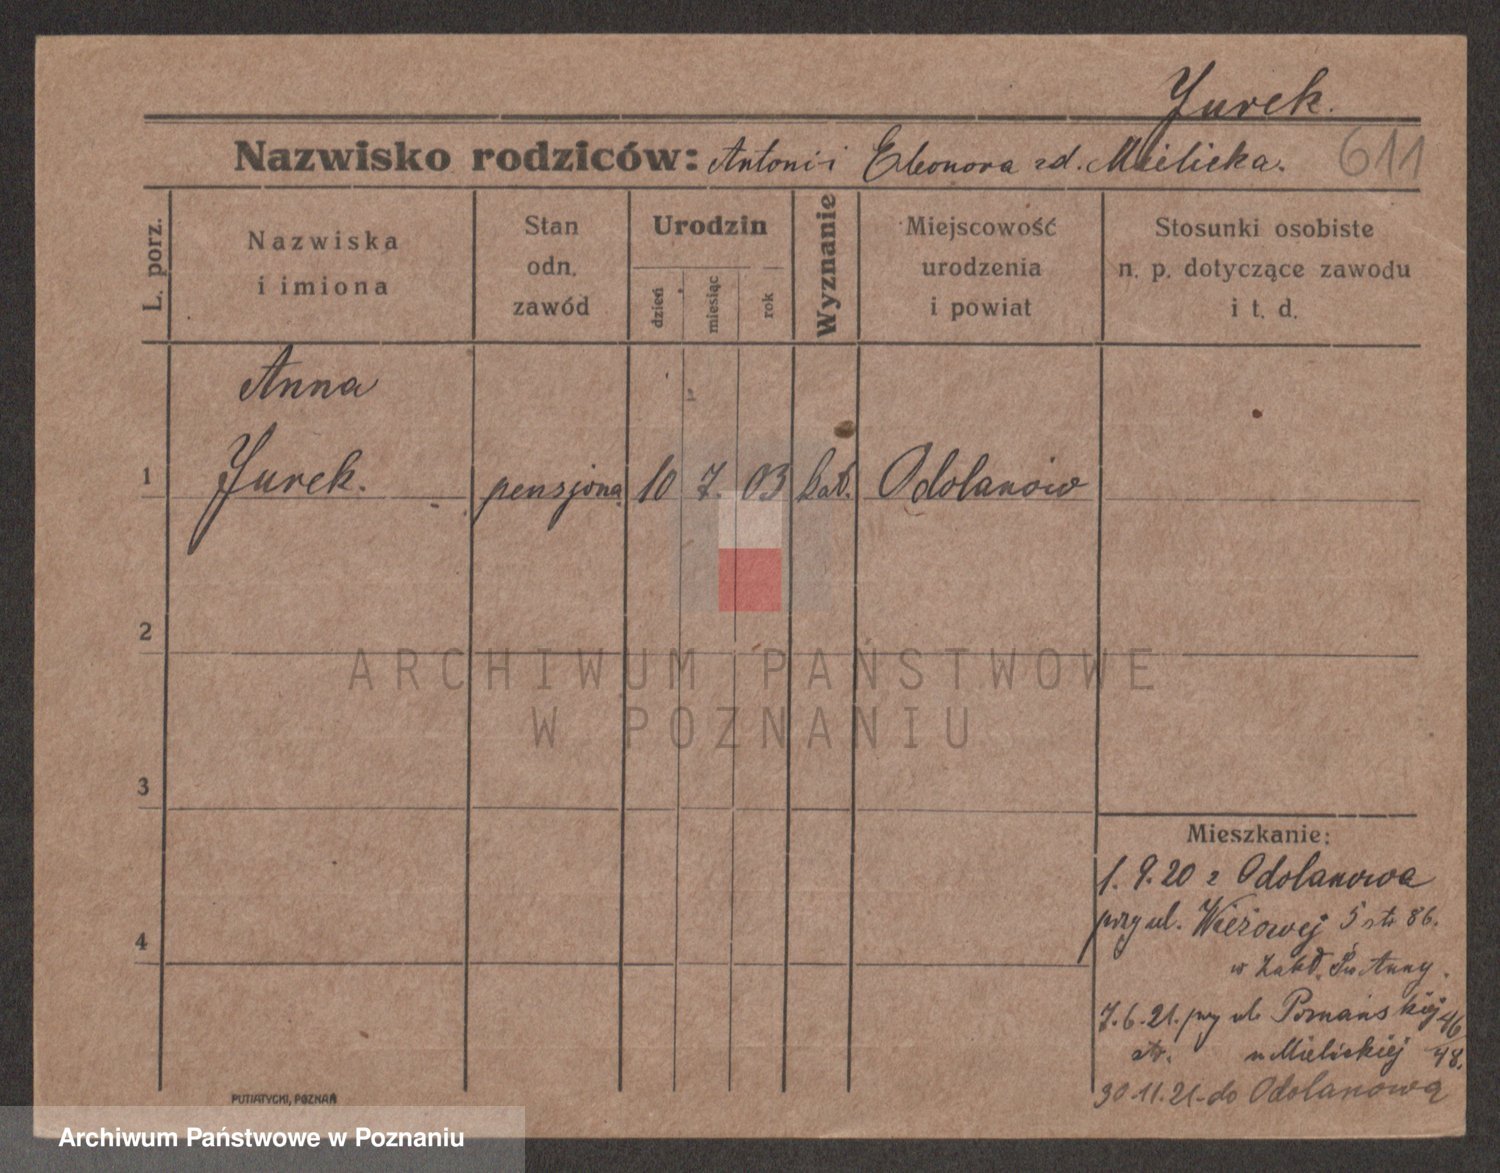 Jurek.
Nazwisko rodziców: Antoni i Eleonora zd. Mielicka.
611
L. porz.
Nazwiska
i imiona
Stan
odn.
zawód
Urodzin
dzień
miesiąc
rok
Wyznanie
Miejscowość
urodzenia
i powiat
Stosunki osobiste
n. p. dotyczące zawodu
i t. d.
Anna
1 Jurek. pensjona 10 7. 03 kat. Odolanów
2
ARCHIWUM PAŃSTWOWE
W POZNANIU
3
Mieszkanie:
1. 9. 20 z Odolanowa
przy ul. Wieżowej 5 str 86.
4
w Zakł. Św Anny.
7. 6. 21. przy ul. Poznańskiej 46
str. u Mielickiej 48.
30.11.21 do Odolanowa
PUTIATYCKI, POZNAŃ
Archiwum Państwowe w Poznaniu